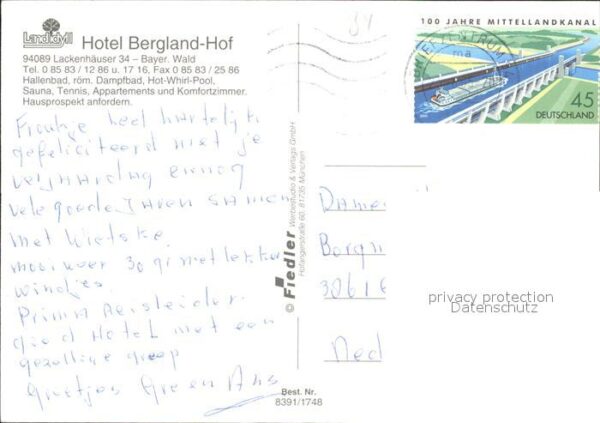 Landidyll
Hotel Bergland-Hof
94089 Lackenhäuser 34 – Bayer. Wald
Tel. 0 85 83 / 12 86 u. 17 16, Fax 0 85 83 / 25 86
Hallenbad, röm. Dampfbad, Hot-Whirl-Pool,
Sauna, Tennis, Appartements und Komfortzimmer.
Hausprospekt anfordern.
Froukje heel hartelijk
gefeliciteerd met je
verjaardag en nog
vele goede JAREN SAMEN
met Wietske.
mooi weer 30 gr met lekker
windjes.
Prima Reisleider.
goed HOTEL met een
gezellige groep
groetjes
© Fiedler Werbestudio & Verlags GmbH
Hofangerstraße 60, 81735 München
Best. Nr.
8391/1748
34
100 JAHRE MITTELLANDKANAL
45
DEUTSCHLAND
BRIEFZENTRUM
Dame
Borgm
Ned
privacy protection
Datenschutz